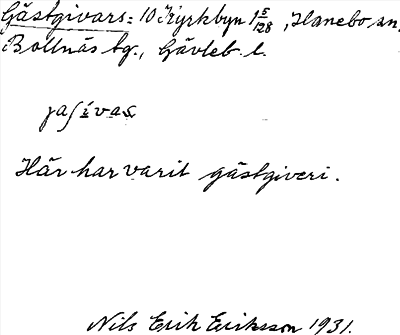 Gästgivars: 10 Kyrkbyn 1 5/128, Hanebo sn,
Bollnäs tg., Gävleb. l.
jaſi̱vas
Här har varit gästgiveri.
Nils Erik Eriksson 1931.